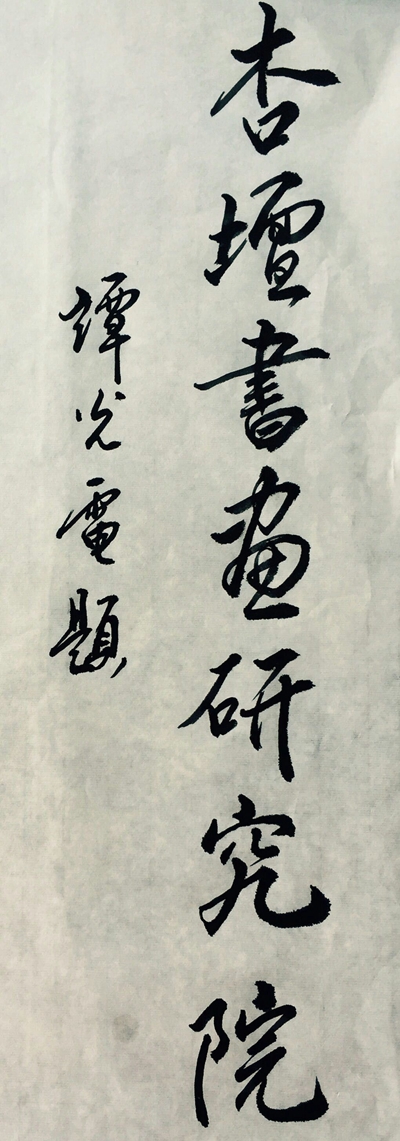 杏壇書画研究院
譚光電題